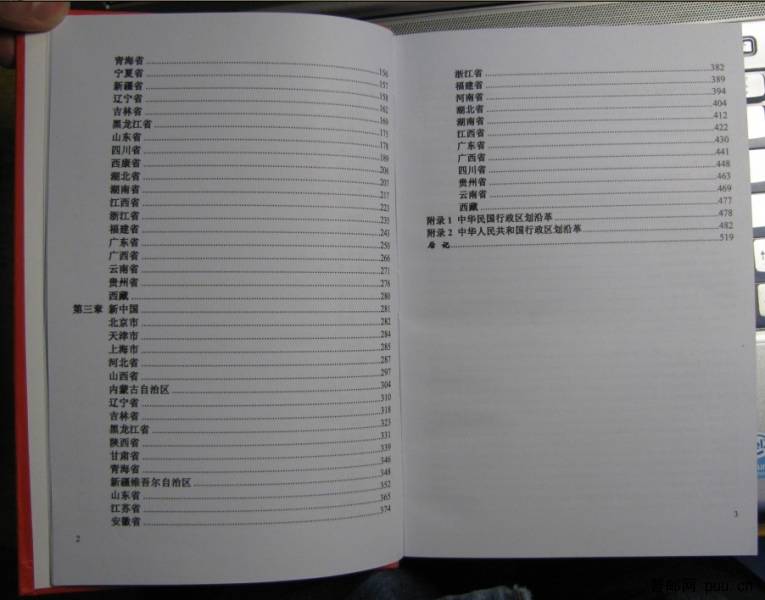 青海省 156
宁夏省 157
新疆省 158
辽宁省 162
吉林省 169
黑龙江省 175
山东省 178
四川省 189
西康省 206
湖北省 207
湖南省 217
江西省 223
浙江省 235
福建省 243
广东省 250
广西省 266
云南省 271
贵州省 276
西藏 280
第三章 新中国 281
北京市 282
天津市 284
上海市 285
河北省 287
山西省 297
内蒙古自治区 304
辽宁省 310
吉林省 318
黑龙江省 323
陕西省 331
甘肃省 339
青海省 346
新疆维吾尔自治区 348
山东省 352
江苏省 365
安徽省 374
2
浙江省 382
福建省 389
河南省 394
湖北省 404
湖南省 412
江西省 422
广东省 430
广西省 441
四川省 448
贵州省 463
云南省 469
西藏 477
附录 1 中华民国行政区划沿革 478
附录 2 中华人民共和国行政区划沿革 482
后 记 519
3